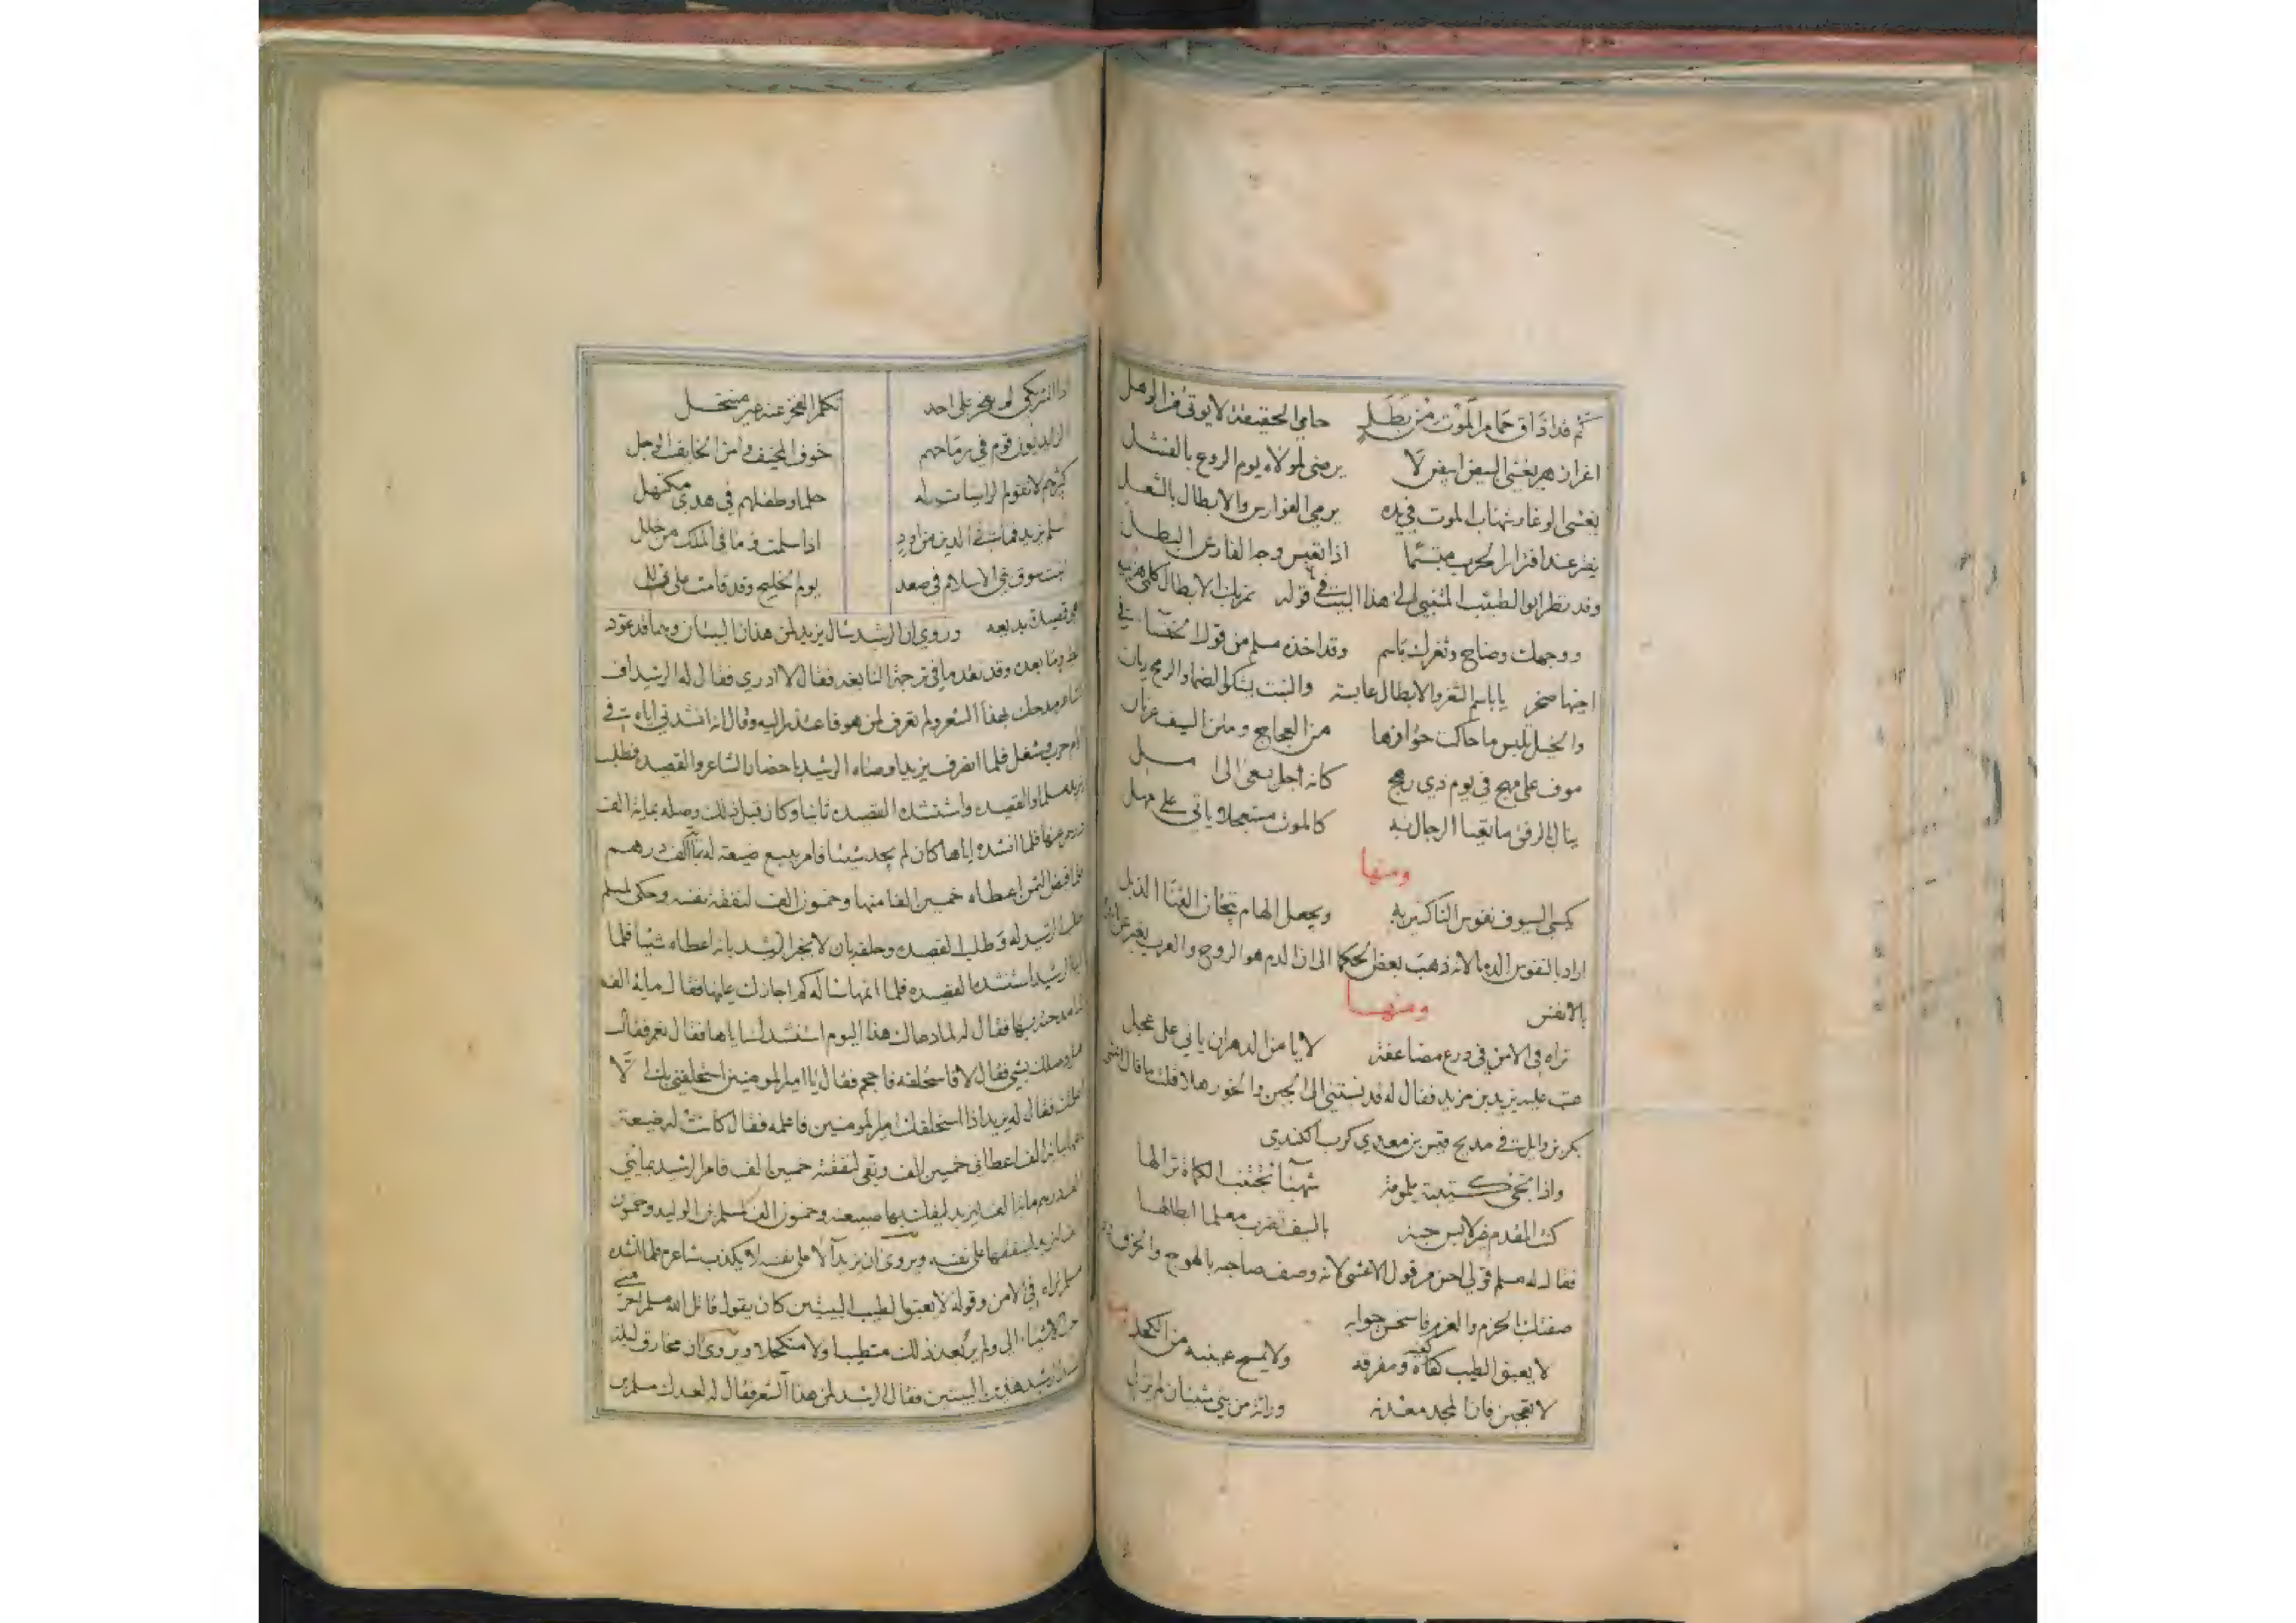 كم قد اذاق حمام الموت من بطل حامي الحقيقة لا يوتي من الوهل
اغر ابيض يغشى البيض ابيض لا يرضى لمولاه يوم الروع بالفشل
يغشى الوغا وشهاب الموت في يده يرمي الفوارس والابطال بالشعل
يفتر عند افترار الحرب مبتسما اذا تغير وجه الفارس البطل
وقد نظر ابو الطيب المتنبي الى هذا البيت في قوله تمر بك الابطال كلمى هزيمة
ووجهك وضاح وثغرك باسم وقد اخذه مسلم من قول الخنساء في
اخيها صخر
والخيل تلبس ما حاكت حوافرها من العجاج ومتن السيف عريان
موف على مهج في يوم ذي رهج كانه اجل يسعى الى امل
ينال بالرفق ما تعيا الرجال به كالموت مستعجلا ياتي على مهل
ومنها
يكسي السيوف نفوس الناكثين به ويجعل الهام تيجان القنا الذبل
اراد بالنفوس الدما لانه ذهب بعض الحكما الى ان الدم هو الروح والعرب يعبر عن الدم
بالانفس ومنها
تراه في الامن في درع مضاعفة لا يامن الدهر ان ياتي على عجل
عتب عليه يزيد بن مزيد فقال له قد نسبتني الى الجبن والخور هلا قلت ما قال اعشى
بكر بن وايل في مديح قيس بن معدي كرب الكندي
واذا تجي كتيبة ملمومة شهبا تجتنب الكماة نزالها
كنت المقدم غير لابس جنة بالسيف تضرب معلما ابطالها
فقال له مسلم قولي احسن من قول الاعشى لانه وصف صاحبه بالهوج والخرق
صفتك بالحزم والعزم فاستحسن جوابه ومنها
لا يعبق الطيب كفيه ومفرقه ولا يمسح عينيه من الكحل
لا تعجبن فان المجد معدنه وراثة من بني شيبان لم تزل
اذا الشريكي لم يفخر على احد تكلم الفخر عنه غير منتحل
الزايديون قوم في رماحهم خوف المخيف وامن الخايف الوجل
كبيرهم لا تقوم الراسيات له حلما وطفلهم في هدي مكتهل
اسلم يزيد فما في الدين من اود اذا سلمت وما في الملك من خلل
اثبت سوق بني الاسلام يوم الخليج وقد قامت على زلل
قصيدة بديعه وروي ان الرشيد سال يزيد لمن هذان البيتان وهما قد عود
الطير وما بعده وقد تقدم في ترجمة النابغه فقال لا ادري فقال له الرشيد اف
شاعر مدحك بهذا الشعر ولم تعرف من هو فاعتذر اليه وقال انه انشدني اياه في
ايام حرب وشغل فلما انصرف يزيد اوصاه الرشيد باحضار الشاعر والقصيده فطلب
يزيد مسلما والقصيده واستنشده القصيده ثانيا وكان قبل ذلك وصله بماية الف
درهم عنها فلما انشده اياها كان لم يجد شيئا فامر ببيع ضيعة له بماية الف درهم
فلما قبض الثمن اعطاه خمسين الفا منها وخمسون الف لنفقة نفسه وحكى لمسلم
طلب الرشيد له وطلب القصيده وحلفه بان لا يخبر الرشيد بانه اعطاه شيئا فلما
اتيا الرشيد استنشده القصيده فلما اتمها ساله كم اجازك عليها فقال ماية الف
لما مدحته بها فقال له لما دعاك هذا اليوم استنشدك اياها فقال نعم فقال
هل وصلك بشي فقال لا فاستحلفه فاحجم فقال يا امير المومنين استحلفني يزيد ان لا
اعلمك فقال له يزيد اذا استحلفك امير المومنين فاعلمه فقال كانت له ضيعة
باعها بماية الف اعطاني خمسين الف وبقى لنفقته خمسين الف فامر الرشيد بمايتي
الف درهم ماية الف ليزيد ليفك بها ضيعته وخمسون الف لمسلم بن الوليد وخمسون
الف ليزيد لينفقها على نفسه ويروى ان يزيد آلا على نفسه لا يكذب شاعره فلما انشده
مسلم تراه في الامن وقوله لا يعبق الطيب البيتين كان يقول قاتل الله مسلم احرمني
احب الاشياء الي ولم ير بعد ذلك متطيبا ولا متكحلا ويروى ان مخارق ليلة
انشد الرشيد هذين البيتين فقال الرشيد لمن هذا الشعر فقال له لعبدك مسلم بن